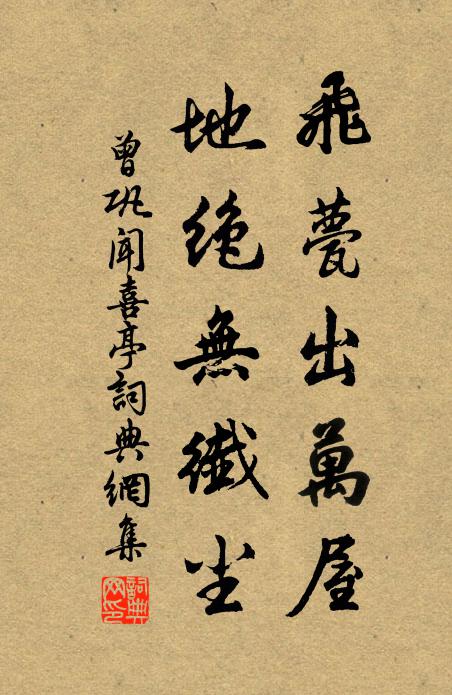 飛甍出萬屋
地絶無纖尘
曾巩闻喜亭詞典網集
詞典網印